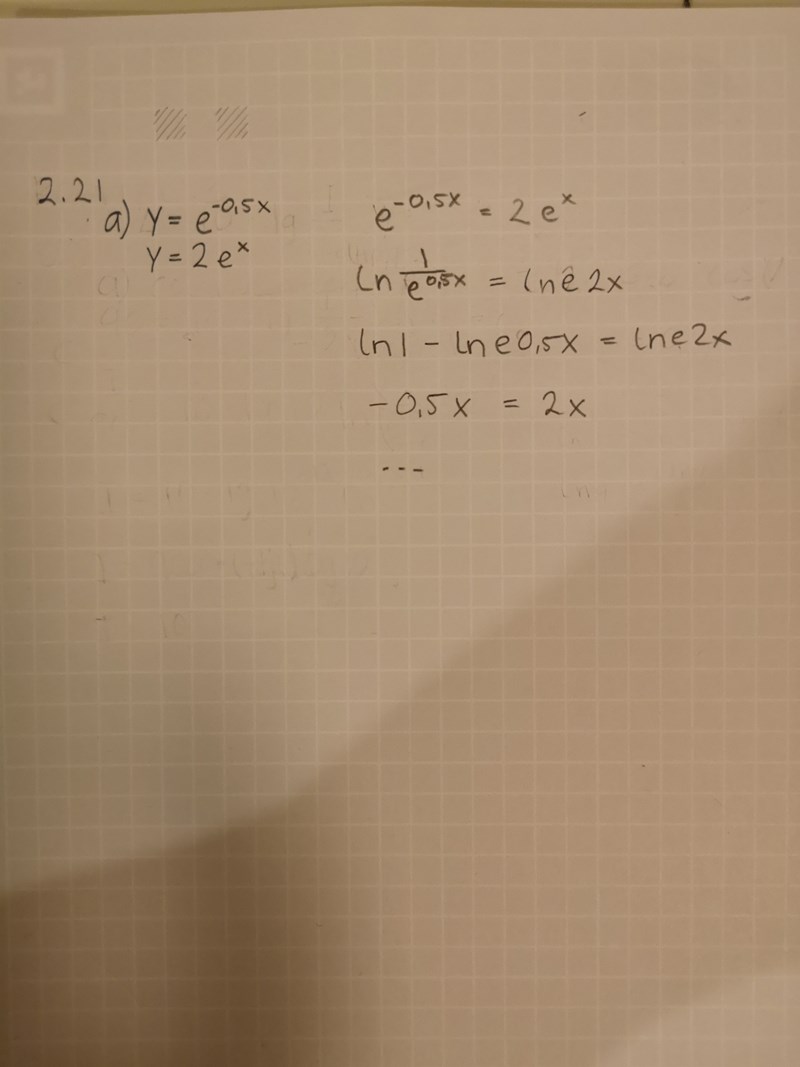 2.21
a) y = e^-0,5x
y = 2e^x
e^-0,5x = 2e^x
ln 1/e^0,5x = ln e 2x
ln 1 - ln e 0,5x = ln e 2x
-0,5x = 2x
---